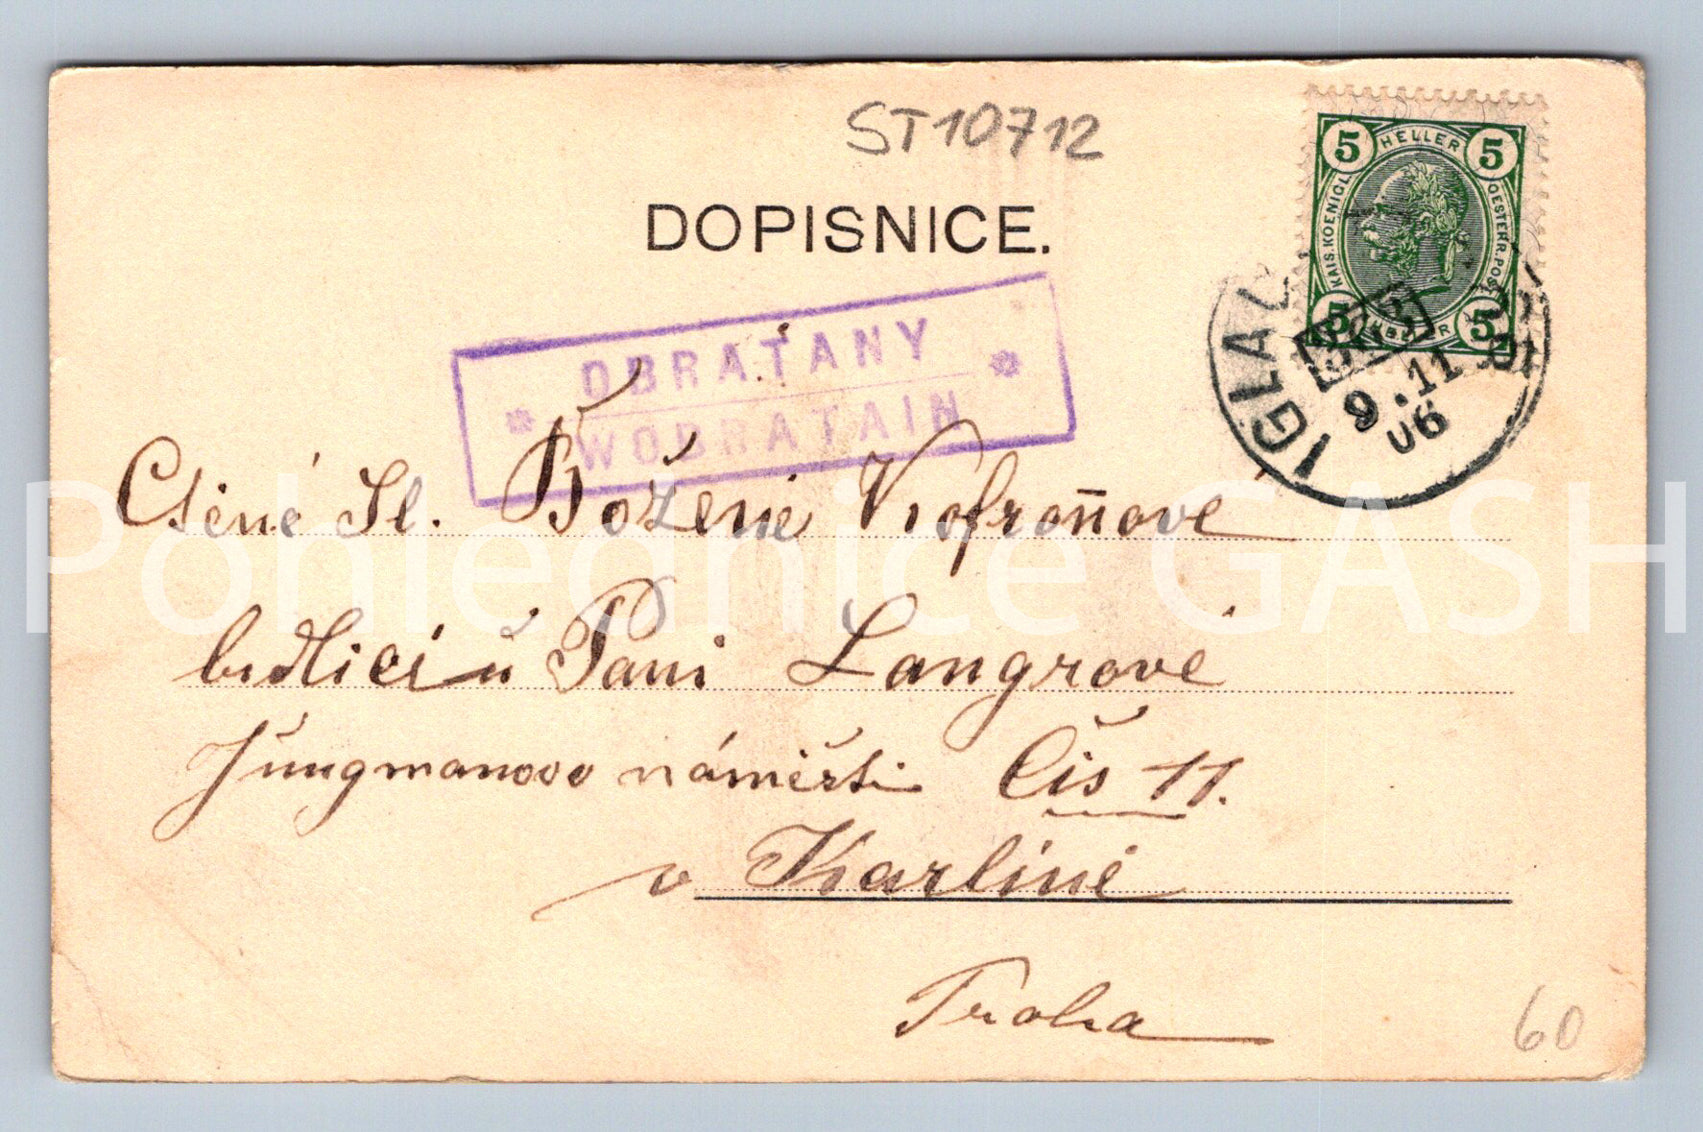 ST10712
DOPISNICE.
5 HELLER 5
KAIS. KOENIGL. OESTERR. POST
5 HELLER 5
OBRATANY
WOBRATAIN
IGLAU
9.11
06
Ctěné Sl. Boženě Vrofroňové
bidlící u Paní Langrové
Jungmanovo náměstí Čis 11.
v Karlíně
Praha
60
Pohlednice GASH